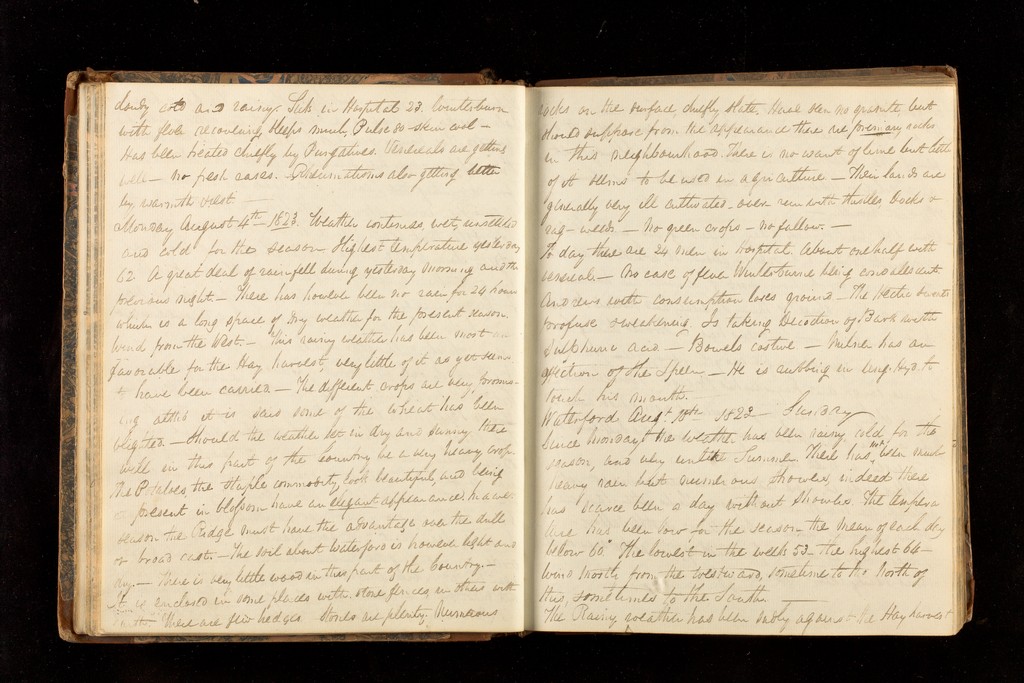 cloudy cold and rainy. Sick in Hospital 23. Winterburn
with fever recovering sleeps much, Pulse 80 - skin cool -
Has been treated chiefly by Purgatives. Venereals are getting
well - no fresh cases. Rheumatisms also getting better
by warmth & rest -
Monday August 4th - 1823. Weather continues, wet, unsettled
and cold for the season Highest temperature yesterday
62. A great deal of rain fell during yesterday morning and the
previous night. - There has however been no rain for 24 hours
which is a long space of dry weather for the present season.
Wind from the West. - This rainy weather has been most un
favorable for the Hay harvest, very little of it as yet seems
to have been carried - The different crops are very promis-
ing altho it is said some of the wheat has been
blighted. - Should the weather set in dry and sunny there
will in this part of the country be a very heavy crop.
The Potatoes, the staple commodity, look beautiful, and being
at present in blossom have an elegant appearance. In a wet
season the Ridge must have the advantage over the drill
or broad cast. - The soil about Waterford is however light and
dry. - There is very little wood in this part of the Country. -
It is enclosed in some places with stone fences, in others with
There are few hedges. Stones are plenty. Numerous
rocks on the surface chiefly slate, have seen no granite, but
should suppose from the appearance there are primary rocks
in this neighbourhood. There is no want of lime but little
of it seems to be used in agriculture - Their lands are
generally very ill cultivated - over run with thistles Docks &
rag-weeds - no green crops - no fallow. -
To day there are 24 men in Hospital. About one half with
venereal - No case of fever Winterburne being convalescent
Andrews with consumption loses ground - The Hectic sweats
profuse & weakening. Is taking Decoction of Bark with
Sulphuric acid - Bowels costive - Milner has an
affection of the Spleen - He is rubbing in ung. Hyd. to
touch his mouth.
Waterford Augt. 10th 1823 - Sunday
Since Monday the weather has been rainy, cold for the
season, and very unlike Summer. There has not been much
heavy rain but numerous showers, indeed there
has scarce been a day without showers. The tempera
ture has been low for the season the mean of each day
below 60. The lowest in the week 53 - the highest 64 -
Wind mostly from the westward, sometimes to the North of
this, sometimes to the South -
The Rainy weather has been sadly against the Hay harvest